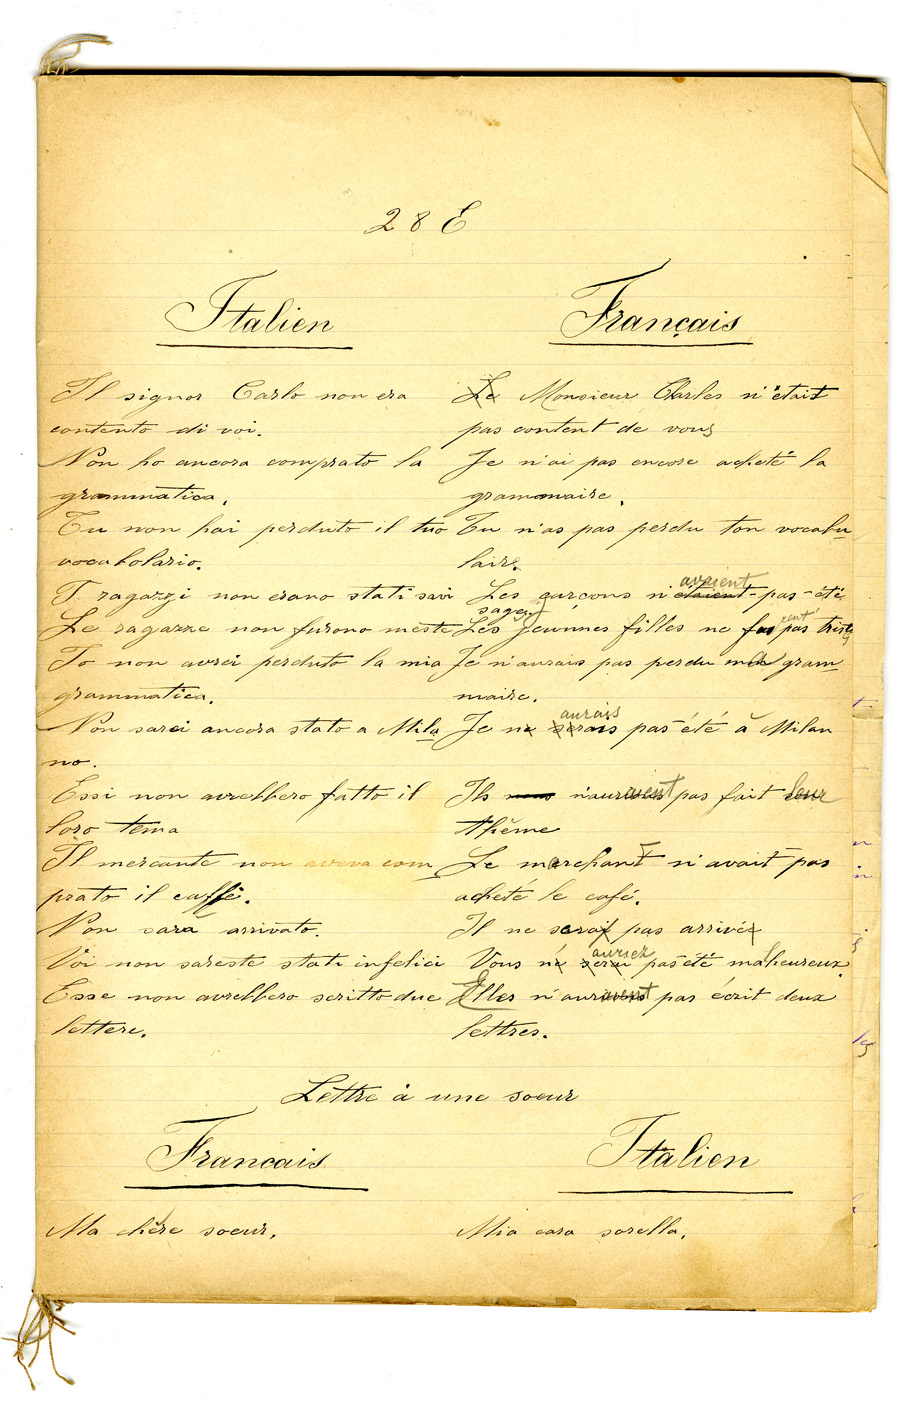 28 E
Italien Français
Il signor Carlo non era Le Monsieur Charles n'était
contento di voi. pas content de vous
Non ho ancora comprato la Je n'ai pas encore acheté la
grammatica. grammaire.
Tu non hai perduto il tuo Tu n'as pas perdu ton vocabu
vocabolario. laire.
avaient
I ragazzi non erano stati savi Les garçons n'étaient-pas-été
sages
Le ragazze non furono meste Les jeunnes filles ne furent pas tristes
Io non avrei perduto la mia Je n'aurais pas perdu ma gram
grammatica. maire.
aurais
Non sarei ancora stato a Mila Je ne serais pas été à Milan
no.
Essi non avrebbero fatto il Ils n'auraient pas fait leur
loro tema thème
Il mercante non aveva com Le marchant n'avait pas
prato il caffè. acheté le café.
Non sarà arrivato. Il ne serai pas arrivé
auriez
Voi non sareste stati infelici Vous ne pas été malheureux.
Esse non avrebbero scritto due Elles n'auraient pas écrit deux
lettere. lettres.
Lettre à une soeur
Francais Italien
Ma chère soeur, Mia cara sorella,